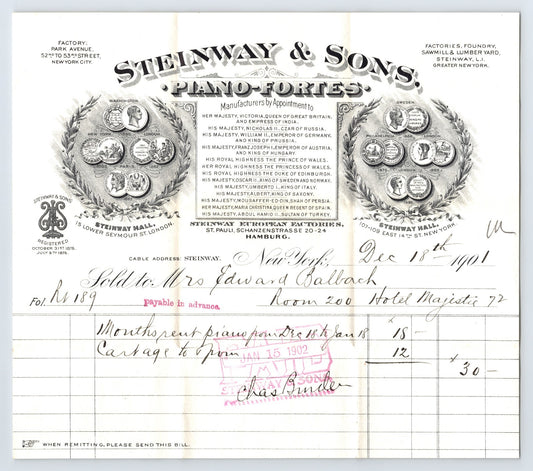 FACTORY:
PARK AVENUE,
52ND TO 53RD STREET,
NEW YORK CITY.
STEINWAY & SONS.
PIANO-FORTES
Manufacturers by Appointment to
FACTORIES, FOUNDRY,
SAWMILL & LUMBER YARD,
STEINWAY, L.I.
GREATER NEW YORK.
HER MAJESTY, VICTORIA, QUEEN OF GREAT BRITAIN,
AND EMPRESS OF INDIA.
HIS MAJESTY, NICHOLAS II, CZAR OF RUSSIA.
HIS MAJESTY, WILLIAM II, EMPEROR OF GERMANY,
AND KING OF PRUSSIA.
HIS MAJESTY, FRANZ JOSEPH I, EMPEROR OF AUSTRIA,
AND KING OF HUNGARY.
HIS ROYAL HIGHNESS THE PRINCE OF WALES.
HER ROYAL HIGHNESS THE PRINCESS OF WALES.
HIS ROYAL HIGHNESS THE DUKE OF EDINBURGH.
HIS MAJESTY, OSCAR II, KING OF SWEDEN AND NORWAY.
HIS MAJESTY, UMBERTO I, KING OF ITALY.
HIS MAJESTY, ALBERT, KING OF SAXONY.
HIS MAJESTY, MOUSAFFER-ED-DIN, SHAH OF PERSIA.
HER MAJESTY, MARIA CHRISTINA, QUEEN REGENT OF SPAIN.
HIS MAJESTY, ABDUL HAMID II, SULTAN OF TURKEY.
STEINWAY EUROPEAN FACTORIES,
ST. PAULI, SCHANZENSTRASSE 20-24
HAMBURG.
STEINWAY & SONS
REGISTERED
STEINWAY HALL,
15 LOWER SEYMOUR ST. LONDON.
SWEDEN
STEINWAY HALL,
107-109 EAST 14TH ST. NEW YORK.
CABLE ADDRESS: STEINWAY.
New York, Dec 18th 1901
Sold to Mrs Edward Balbach
Fol. Rs 189
payable in advance.
Room 200 Hotel Majestic 72
Months rent piano from Dec 18 to Jan 18 15 -
Cartage to & from 12
30 -
JAN 15 1902
STEINWAY & SONS
WHEN REMITTING, PLEASE SEND THIS BILL.